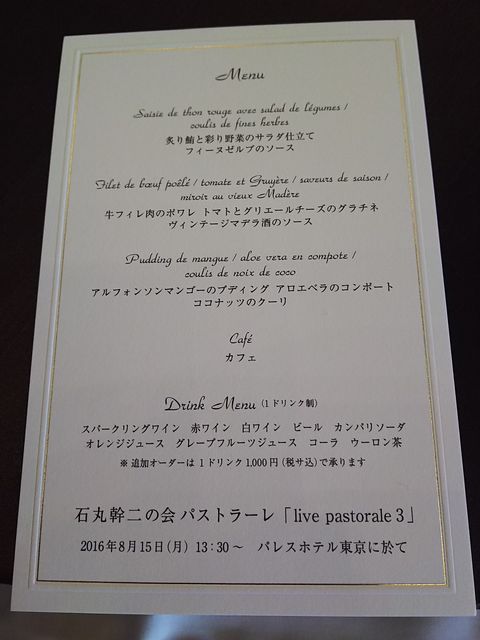 Menu
Saisie de thon rouge avec salad de légumes /
coulis de fines herbes
炙り鮪と彩り野菜のサラダ仕立て
フィーヌゼルブのソース
Filet de bœuf poêlé / tomate et Gruyère / saveurs de saison /
miroir au vieux Madère
牛フィレ肉のポワレ トマトとグリエールチーズのグラチネ
ヴィンテージマデラ酒のソース
Pudding de mangue / aloe vera en compote /
coulis de noix de coco
アルフォンソンマンゴーのプディング アロエベラのコンポート
ココナッツのクーリ
Café
カフェ
Drink Menu (1ドリンク制)
スパークリングワイン 赤ワイン 白ワイン ビール カンパリソーダ
オレンジジュース グレープフルーツジュース コーラ ウーロン茶
※追加オーダーは1ドリンク1,000円(税サ込)で承ります
石丸幹二の会 パストラーレ「live pastorale 3」
2016年8月15日(月) 13:30〜 パレスホテル東京に於て